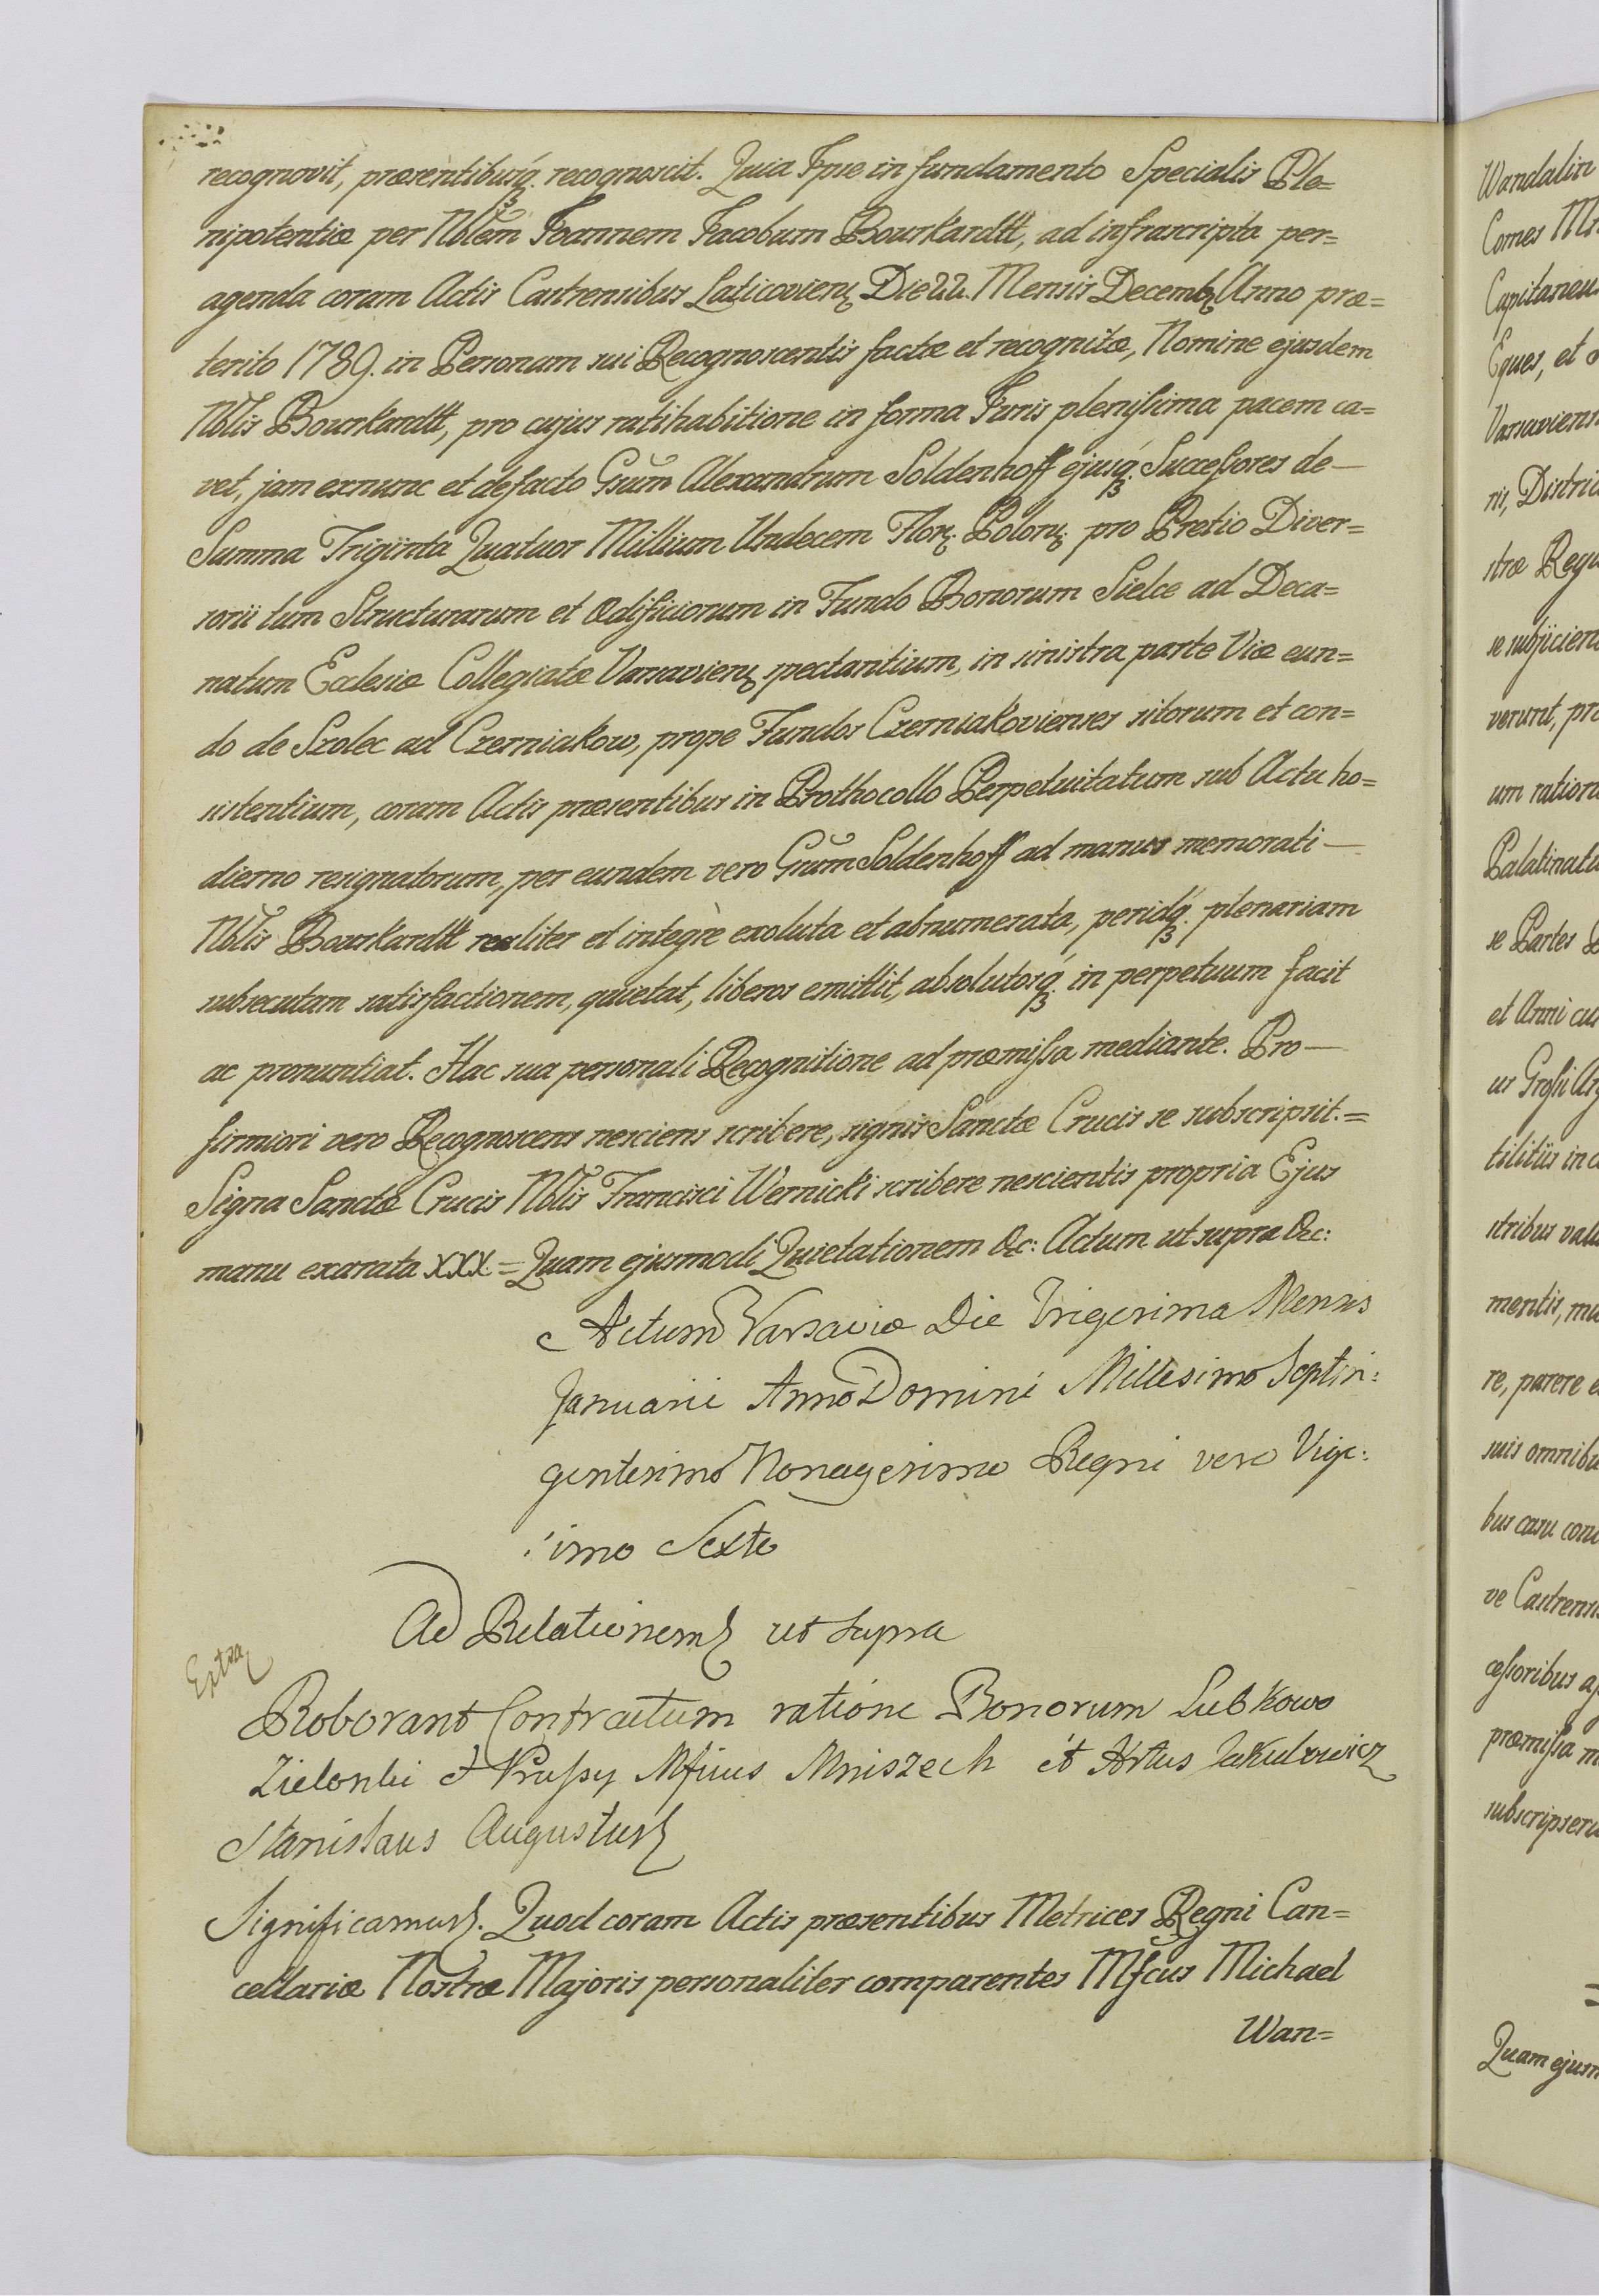 recognovit, præsentibusq́ꝫ recognoscit. Quia Ipse in fundamento Specialis Ple=
nipotentiæ per Nblem Joannem Jacobum Bourkardtt, ad infrascripta per=
agenda coram Actis Castrensibus Laticoviens Die 22. Mensis Decemb Anno præ=
terito 1789. in Personam sui Recognoscentis factæ et recognitæ, Nomine ejusdem
Nblis Bourkardtt, pro cujus ratihabitione in forma Juris plenissima pacem ca=
vet, jam exnunc et defacto Gsum Alexandrum Soldenhoff ejusq́ꝫ Successores de—
Summa Triginta Quatuor Millium Undecem Flor. Polon. pro Pretio Diver=
sorii tum Structurarum et Ædificiorum in Fundo Bonorum Sielce ad Deca=
natum Ecclesiæ Collegiatæ Varsaviens spectantium, in sinistra parte Viæ eun=
do de Szolec ad Czerniakow, prope Fundos Czerniakovienses sitorum et con=
sistentium, coram Actis præsentibus in Prothocollo Perpetuitatum sub Actu ho=
dierno resignatorum, per eundem vero Gsum Soldenhoff ad manus memorati—
Nblis Bourkardtt realiter et integrè exoluta et abnumerata, peridq́ꝫ plenariam
subsecutam satisfactionem, quietat, liberos emittit, absolutosq́ꝫ in perpetuum facit
ac pronuntiat. Hac sua personali Recognitione ad præmissa mediante. Pro—
firmiori vero Recognoscens nesciens scribere, signis Sanctæ Crucis se subscripsit.=
Signa Sanctæ Crucis Nblis Francisci Wernicki scribere nescientis propria Ejus
manu exarata XXX = Quam ejusmodi Quietationem &c: Actum ut supra &c:
Actum Varsaviæ Die Trigesima Mensis
Januarii Anno Domini Millesimo Septin:
gentesimo Nonagesimo Regni vero Vige:
simo Sexto
Ad Relationem ut supra
Extra
Roborant Contractum ratione Bonorum Lubkowo
Zielonki et Prussy Mficus Mniszech et
Stanislaus Augustus
Significamus. Quod coram Actis præsentibus Metrices Regni Can=
cellariæ Nostræ Majoris personaliter comparentes Mfcus Michael
Wan=
Wandalin
Comes
Capitaneu
Eques, et
Varsaviens
ris, Distric
stræ Reg
se subjicien
verunt, pr
um ration
Palatinatu
se Partes
et Anni cu
us Grossi
tilitiis in
stribus val
mentis, mu
re, parere e
suis omnibu
bus casu con
ve Castrens
cessoribus
præmissa m
subscripseru
Quam ejusm